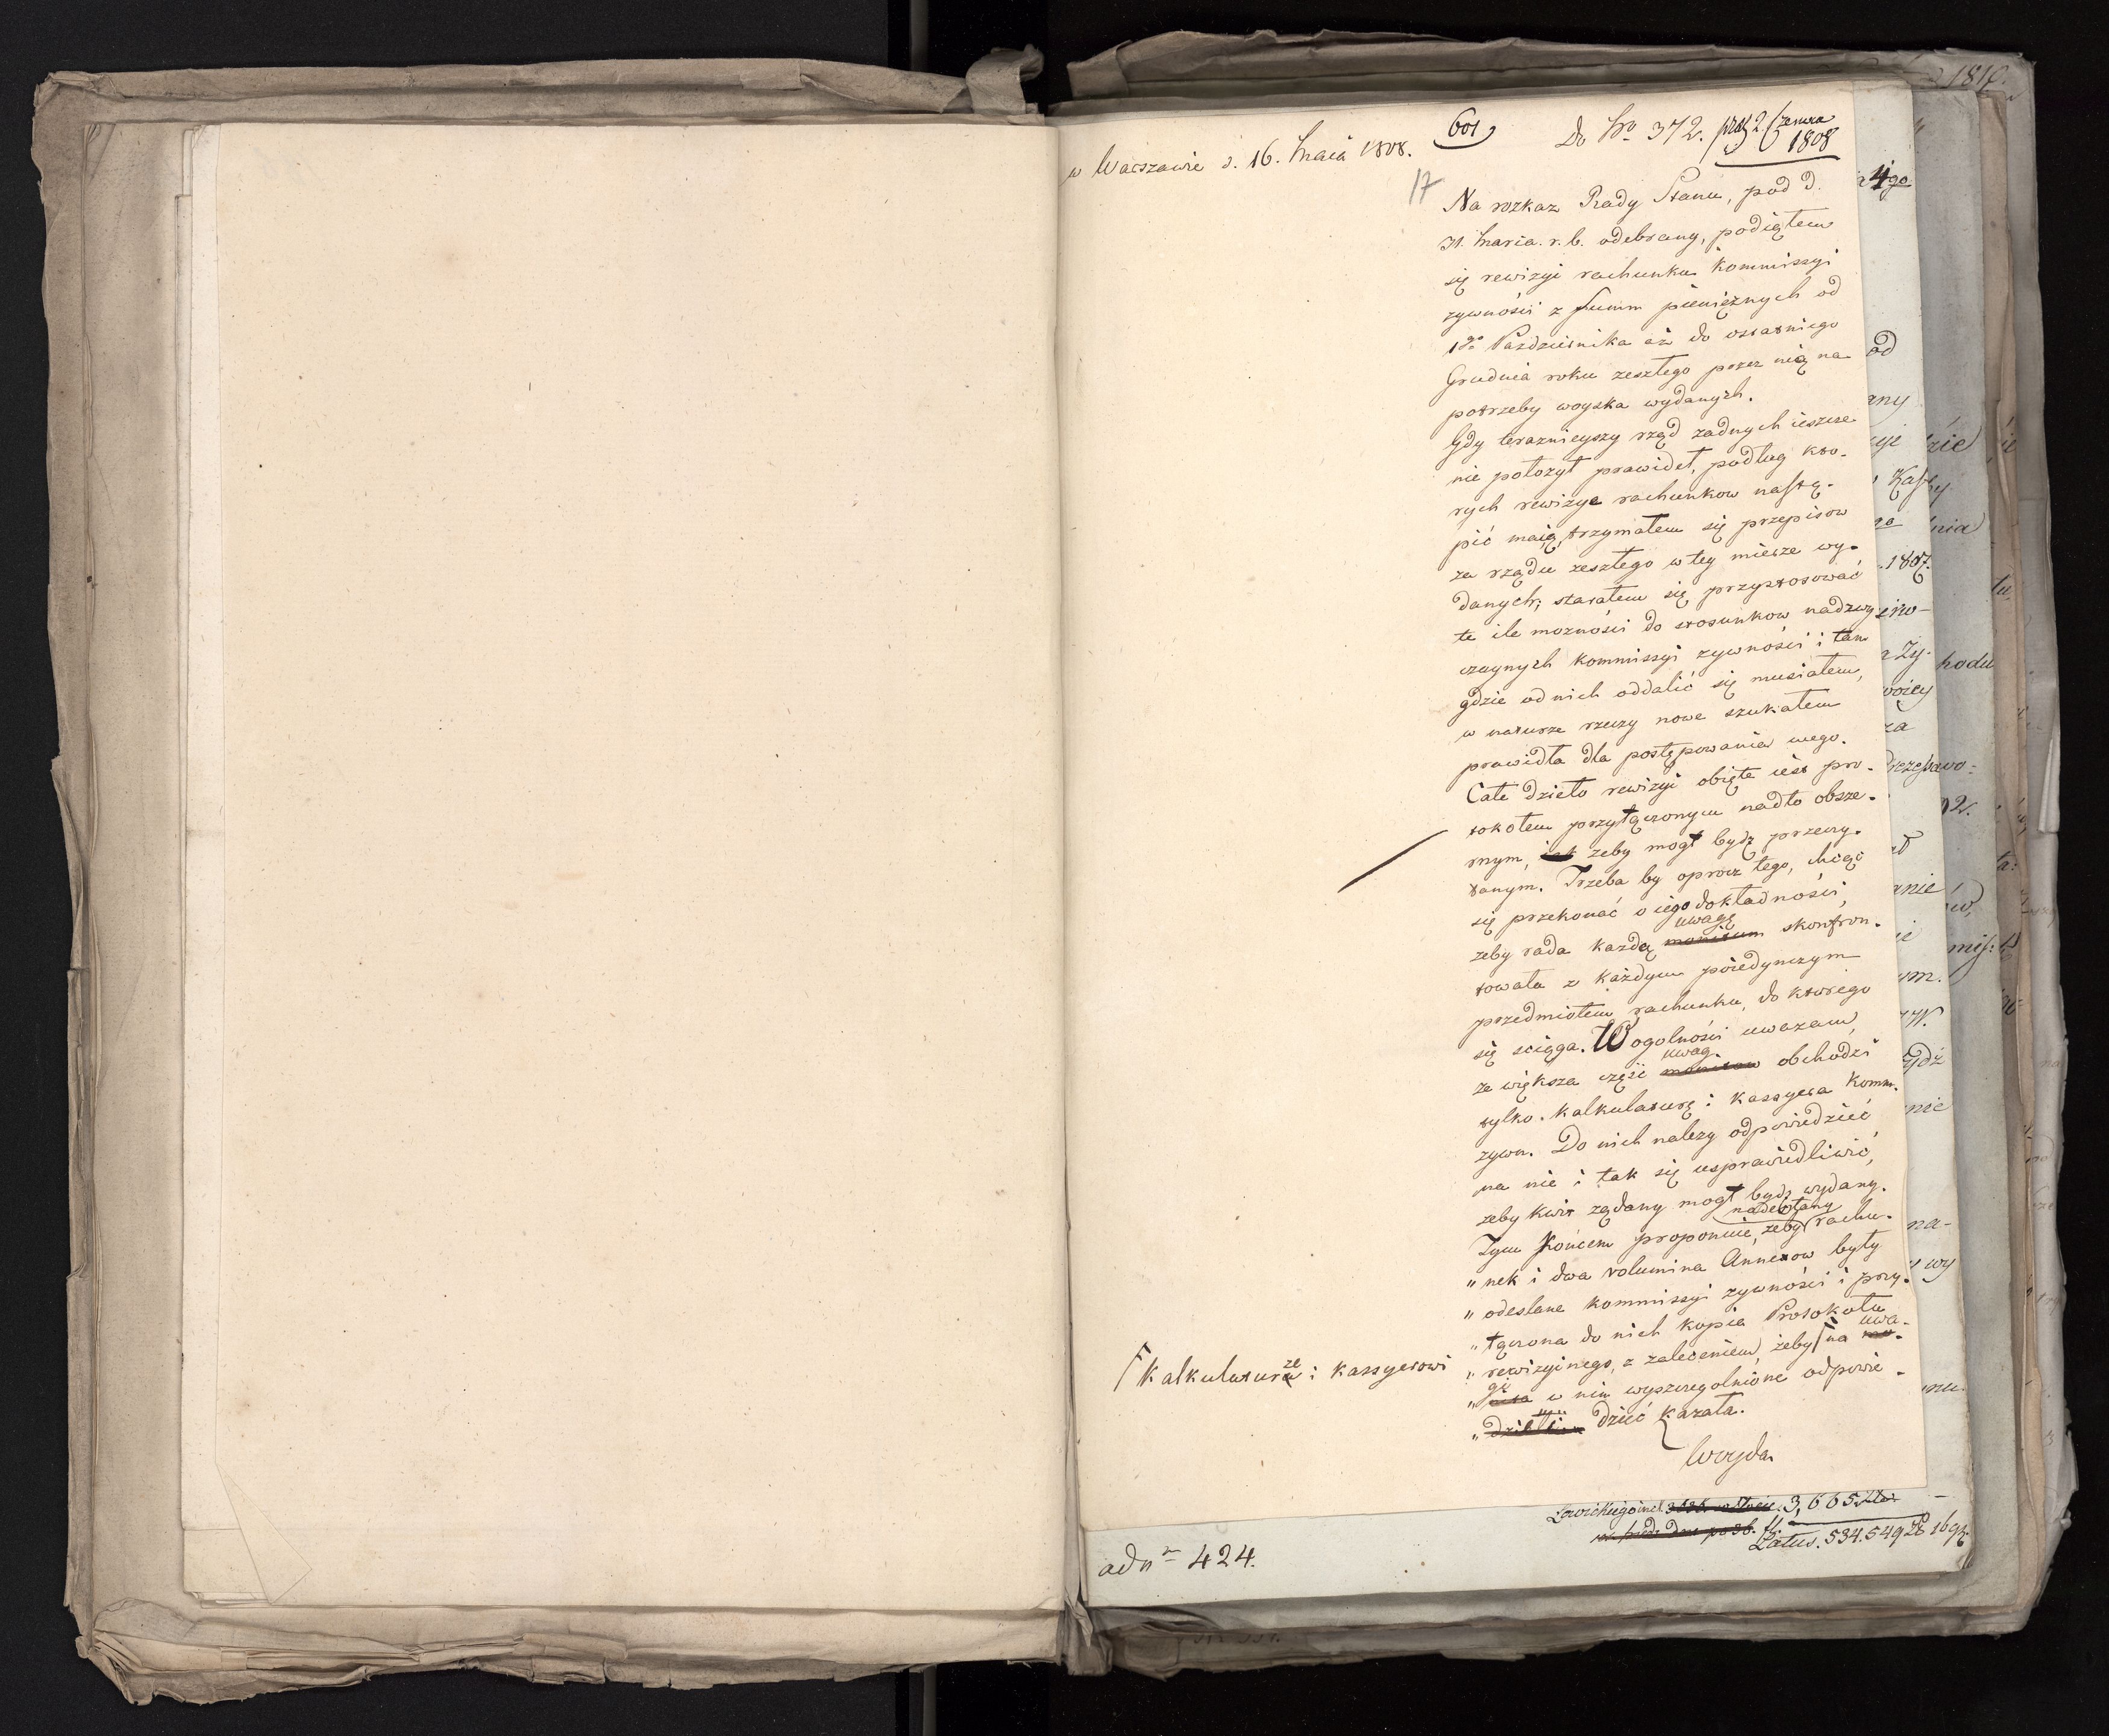 w Warszawie d. 16. Maia 1808.
601
Do No 372. 1808
17
Na rozkaz Rady Stanu, pod d.
31. Marca. r. b. odebrany, podiąłem
się rewizyi rachunku Kommissyi
zywności z summ pieniężnych od
1go Pazdziernika aż do ostatniego
Grudnia roku zeszłego przez nię na
potrzeby woyska wydanych.
Gdy teraznieyszy rząd zadnych ieszcze
nie położył prawideł, podług kto-
rych rewizye rachunkow nastę-
pić maią, trzymałem się przepisow
za rządu zeszłego w tey mierze wy-
danych; starałem się przystosować
te ile mozności do stosunkow nadzwy-
czaynych kommissyi zywności i tam
gdzie od nich oddalić się musiałem,
w naturze rzeczy nowe szukałem
prawidła dla postępowania mego.
Całe dzieło rewizyi obięte iest pro-
tokołem przyłączonym nadto obsze-
rnym, iak zeby mogł bydz przeczy-
tanym. Trzeba by oprocz tego, chcąc
się przekonać o iego dokładności,
uwagę
zeby rada kazdą monitum skontron-
towała z każdym poiedynczym
przedmiotem rachunku, do ktorego
się sciąga. W ogolności uwazam,
uwag
ze większa część monitow obchodzi
tylko kalkulaturę i kassyera Komm.
zywn. Do nich nalezy odpowiedzieć
na nie i tak się usprawiedliwić,
zeby kwit ządany mogł bydz wydany.
nadesłany
Tym Końcem proponuię, zeby rachu-
" nek i dwa volumina Annexow były
" odesłane kommissyi zywności i przy-
" łączona do nich kopia Protokołu
uwa-
" rewizyinego, z zaleceniem, żeby na mo-
ze
kalkulatura i kassyerowi
gi
" nita w nim wyszczegolnione odpowie-
" dzieć kazała.
Woyda
Łowickiego 3,665
Latus. 534.549 16
ad nm 424.